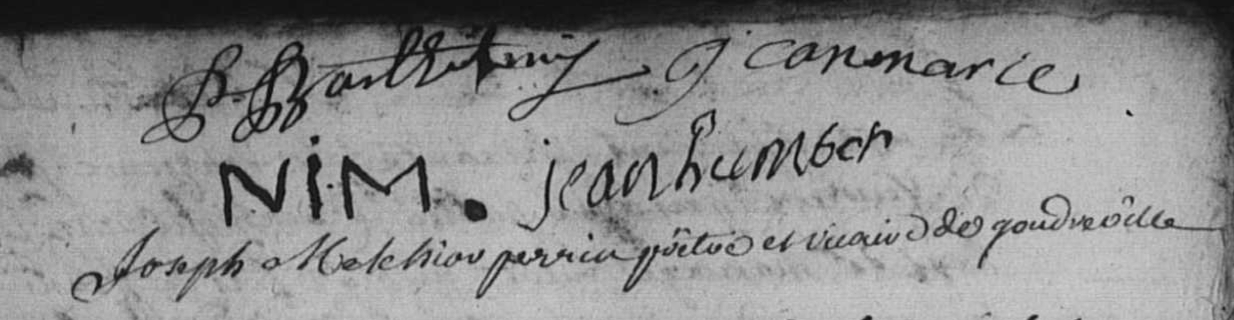 P. Barthelemy Jean marie
NiM. jean humber
Joseph Melchior perrin prêtre et vicaire de goudreville